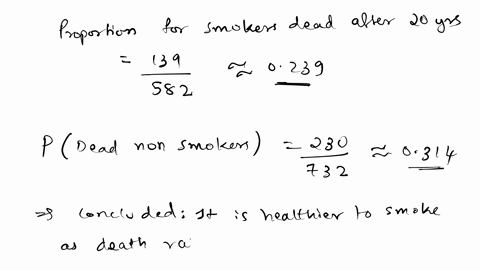 Proportion for smokers dead after 20 yrs
= 139/582 ≈ 0.239
P(Dead non smokers) = 230/732 ≈ 0.314
⇒ Concluded: It is healthier to smoke
as death ra